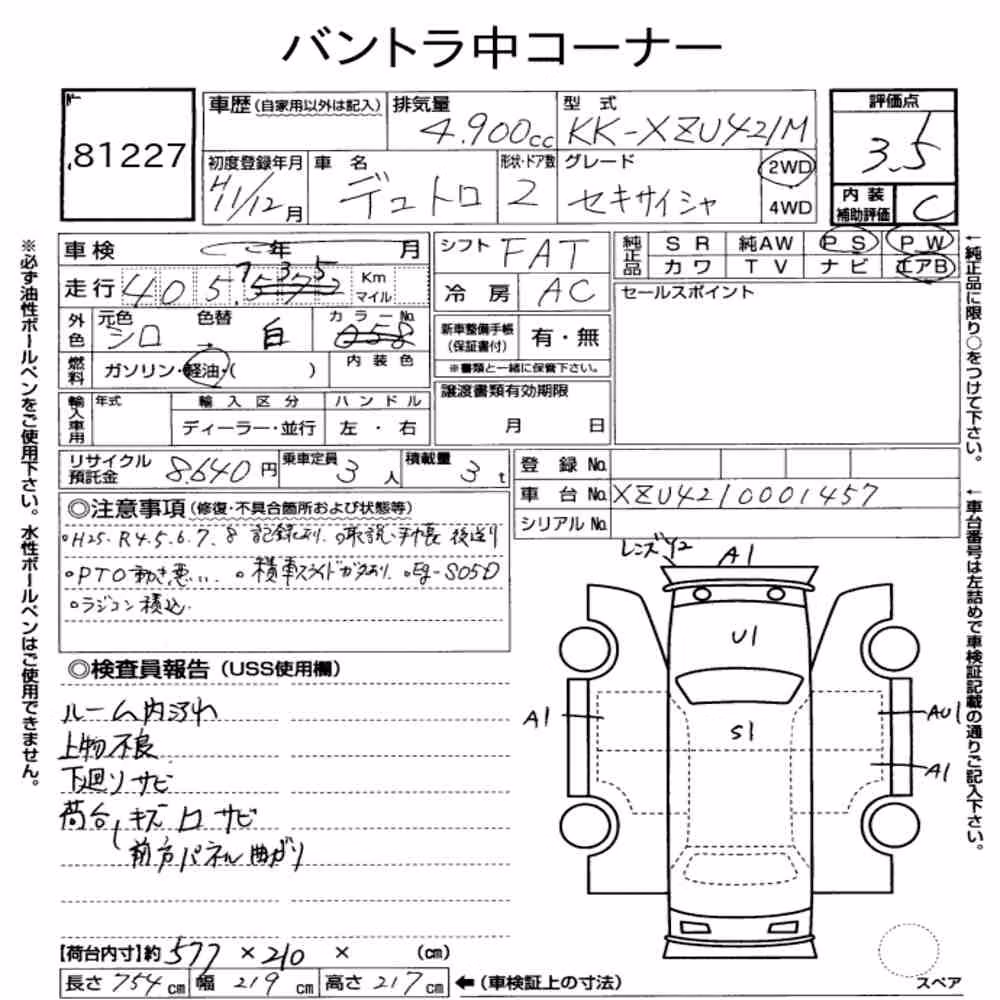 バントラ中コーナー
81227
車歴 (自家用以外は記入) 排気量 4.900cc 型式 KK-XZU421M
評価点 3.5
初度登録年月 H11/12月 車名 デュトロ 形状・ドア数 2 グレード セキサイシャ 2WD 4WD
内装補助評価 C
車検 年 月 シフト FAT 純正品 SR 純AW PS PW
カワ TV ナビ エアB
走行 405.735 Km マイル 冷房 AC セールスポイント
外色 元色 シロ 色替 → 白 カラーNo. 058
新車整備手帳(保証書付) 有・無
※書類と一緒に保管下さい。
燃料 ガソリン・軽油・( ) 内装色
輸入車用 年式 輸入区分 ハンドル
ディーラー・並行 左・右
譲渡書類有効期限
月 日
リサイクル預託金 8.640円 乗車定員 3人 積載量 3t
登録No.
車台No. XZU4210001457
シリアルNo.
◎注意事項 (修復・不具合箇所および状態等)
○H25.R4.5.6.7.8 記録有り. ○取説・手帳 後送り
○PTO動き悪い. ○積車スライドガタあり. ○Eg-S05D
○ラジコン積込.
◎検査員報告 (USS使用欄)
ルーム内汚れ
上物不良
下廻りサビ
荷台 キズ凹サビ
前方パネル曲がり
レンズY2
A1
U1
S1
A1
AU1
A1
【荷台内寸】約 577 × 210 × (cm)
長さ 754cm 幅 219cm 高さ 217cm ←(車検証上の寸法)
スペア
※必ず油性ボールペンをご使用下さい。水性ボールペンはご使用できません。
←純正品に限り○をつけて下さい。
←車台番号は左詰めで車検証記載の通りご記入下さい。